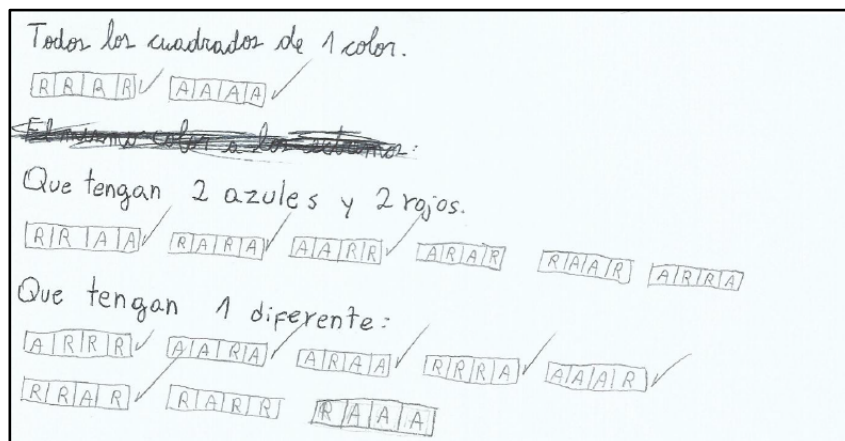 Todos los cuadrados de 1 color.
R R R R A A A A
El mismo color a los extremos:
Que tengan 2 azules y 2 rojos.
R R A A R A R A A A R R A R A R R A A R A R R A
Que tengan 1 diferente:
A R R R A A R A A R A A R R R A A A A R
R R A R R A R R R A A A